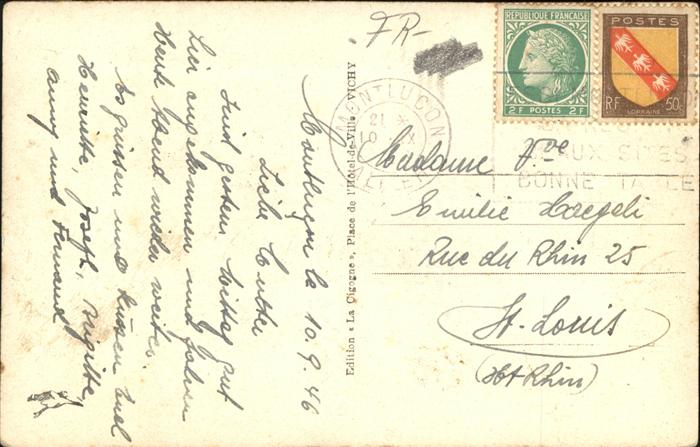 FR-
REPUBLIQUE FRANÇAISE
2F POSTES 2F
POSTES
RF 50c
LORRAINE
MONTLUCON
21 *
10 IX
BEAUX SITES
BONNE TABLE
Madame Vve
Emilie Haegeli
Rue du Rhin 25
St. Louis
(Ht Rhin)
Edition « La Cigogne », Place de l'Hôtel-de-Ville - VICHY
Montluçon le 10.9.46
Liebe Mutter
Sind gestern Mittag gut
hier angekommen und fahren
Heute Abend wieder weiter.
Es grüssen und küssen Euch
Henriette, Joseph, Brigitte,
Anny und Fernand